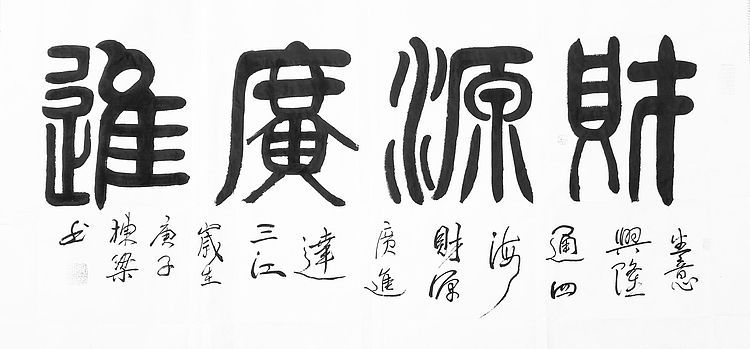 財源廣進
生意
興隆
通四
海
財源
廣進
達
三江
歲在
庚子
棟梁
书